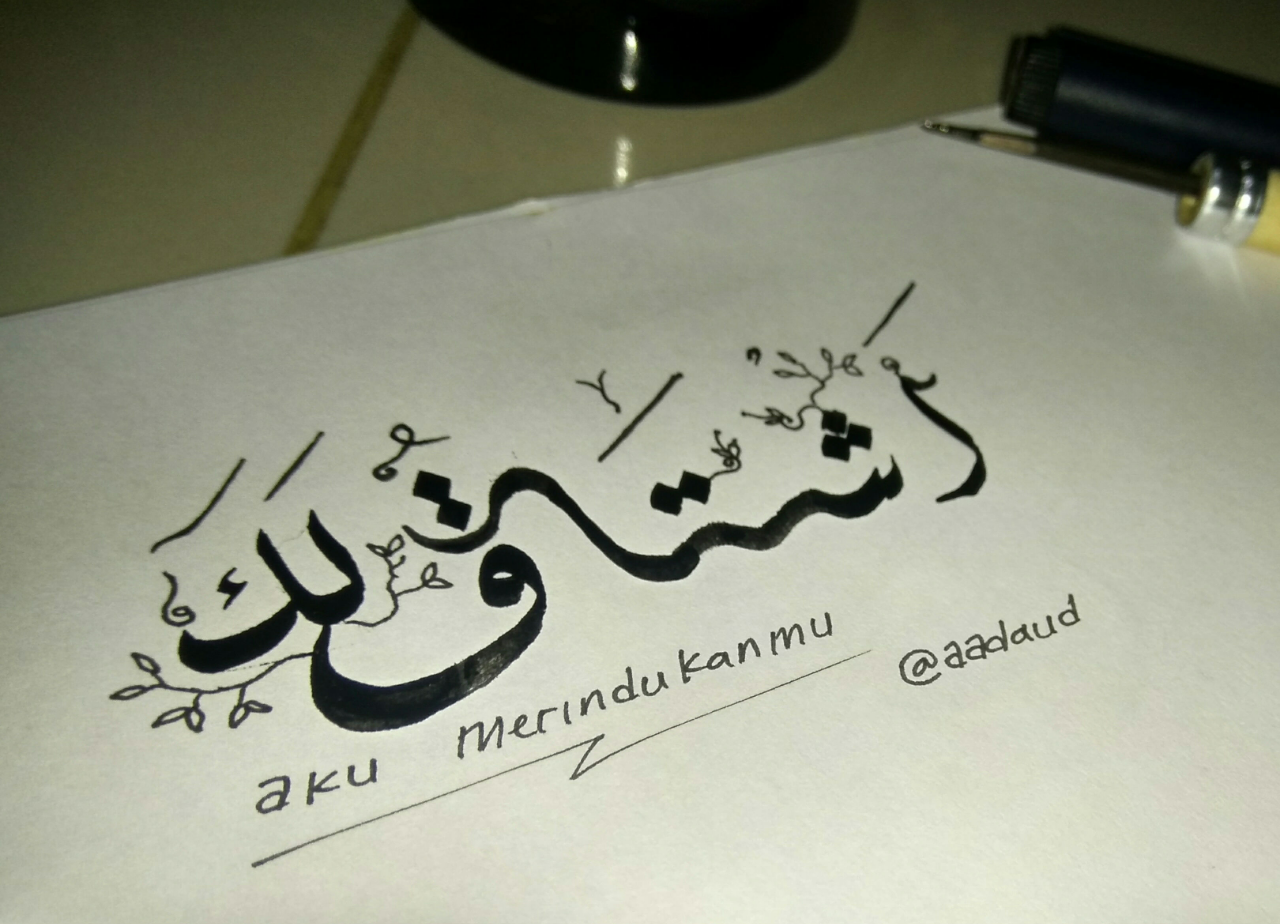 أَشْتَاقُ لَكَ
aku merindukanmu
@aadaud